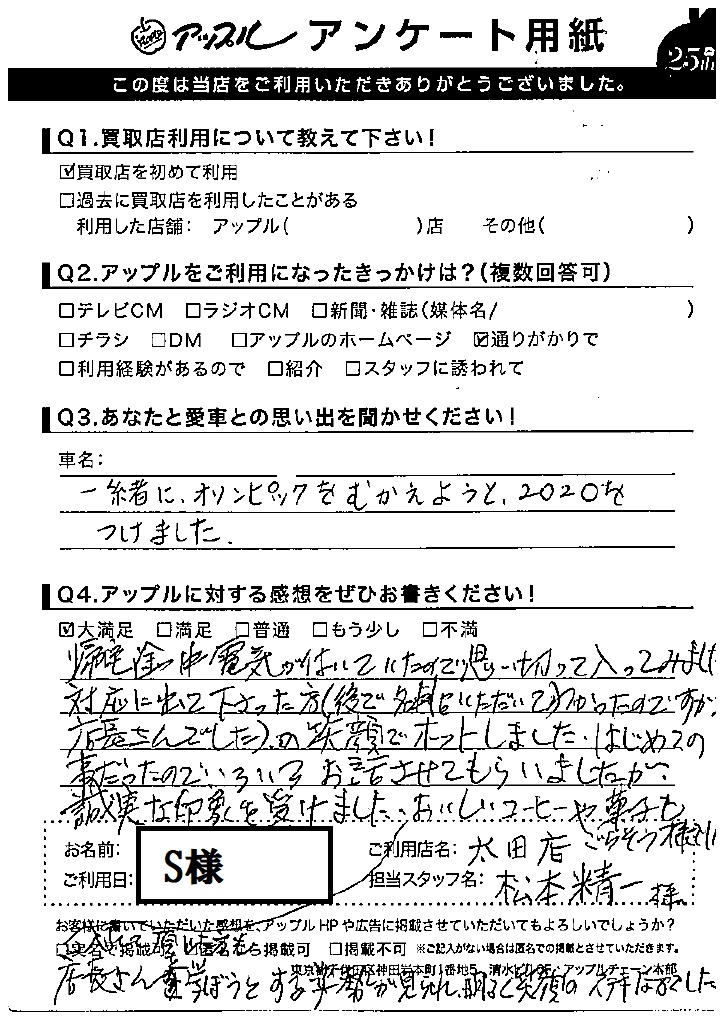 アップル アンケート用紙
25th
この度は当店をご利用いただきありがとうございました。
Q1.買取店利用について教えて下さい！
☑買取店を初めて利用
□過去に買取店を利用したことがある
利用した店舗： アップル（ ）店 その他（ ）
Q2.アップルをご利用になったきっかけは？（複数回答可）
□テレビCM □ラジオCM □新聞・雑誌（媒体名/ ）
□チラシ □DM □アップルのホームページ ☑通りがかりで
□利用経験があるので □紹介 □スタッフに誘われて
Q3.あなたと愛車との思い出を聞かせください！
車名：
一緒に、オリンピックをむかえようと、2020を
つけました。
Q4.アップルに対する感想をぜひお書きください！
☑大満足 □満足 □普通 □もう少し □不満
帰宅途中電気がついていたので思い切って入ってみました
対応に出て下さった方（後で名刺をいただいてわかったのですが
店長さんでした）の笑顔でホットしました。はじめての
事だったのでいろいろお話させてもらいましたが、
誠実な印象を受けました。おいしいコーヒーや菓子も
ごちそう様でした
お名前： S様
ご利用店名： 太田店
ご利用日：
担当スタッフ名： 松本精一様
お客様に書いていただいた感想を、アップルHPや広告に掲載させていただいてもよろしいでしょうか？
□実名で掲載可 □匿名なら掲載可 □掲載不可 ※ご記入がない場合は匿名での掲載とさせていただきます。
東京都千代田区神田岩本町1番地5 清水ビル5F アップルチェーン本部
店長さん 学ぼうとする姿勢が見られ、明るく笑顔のステキな